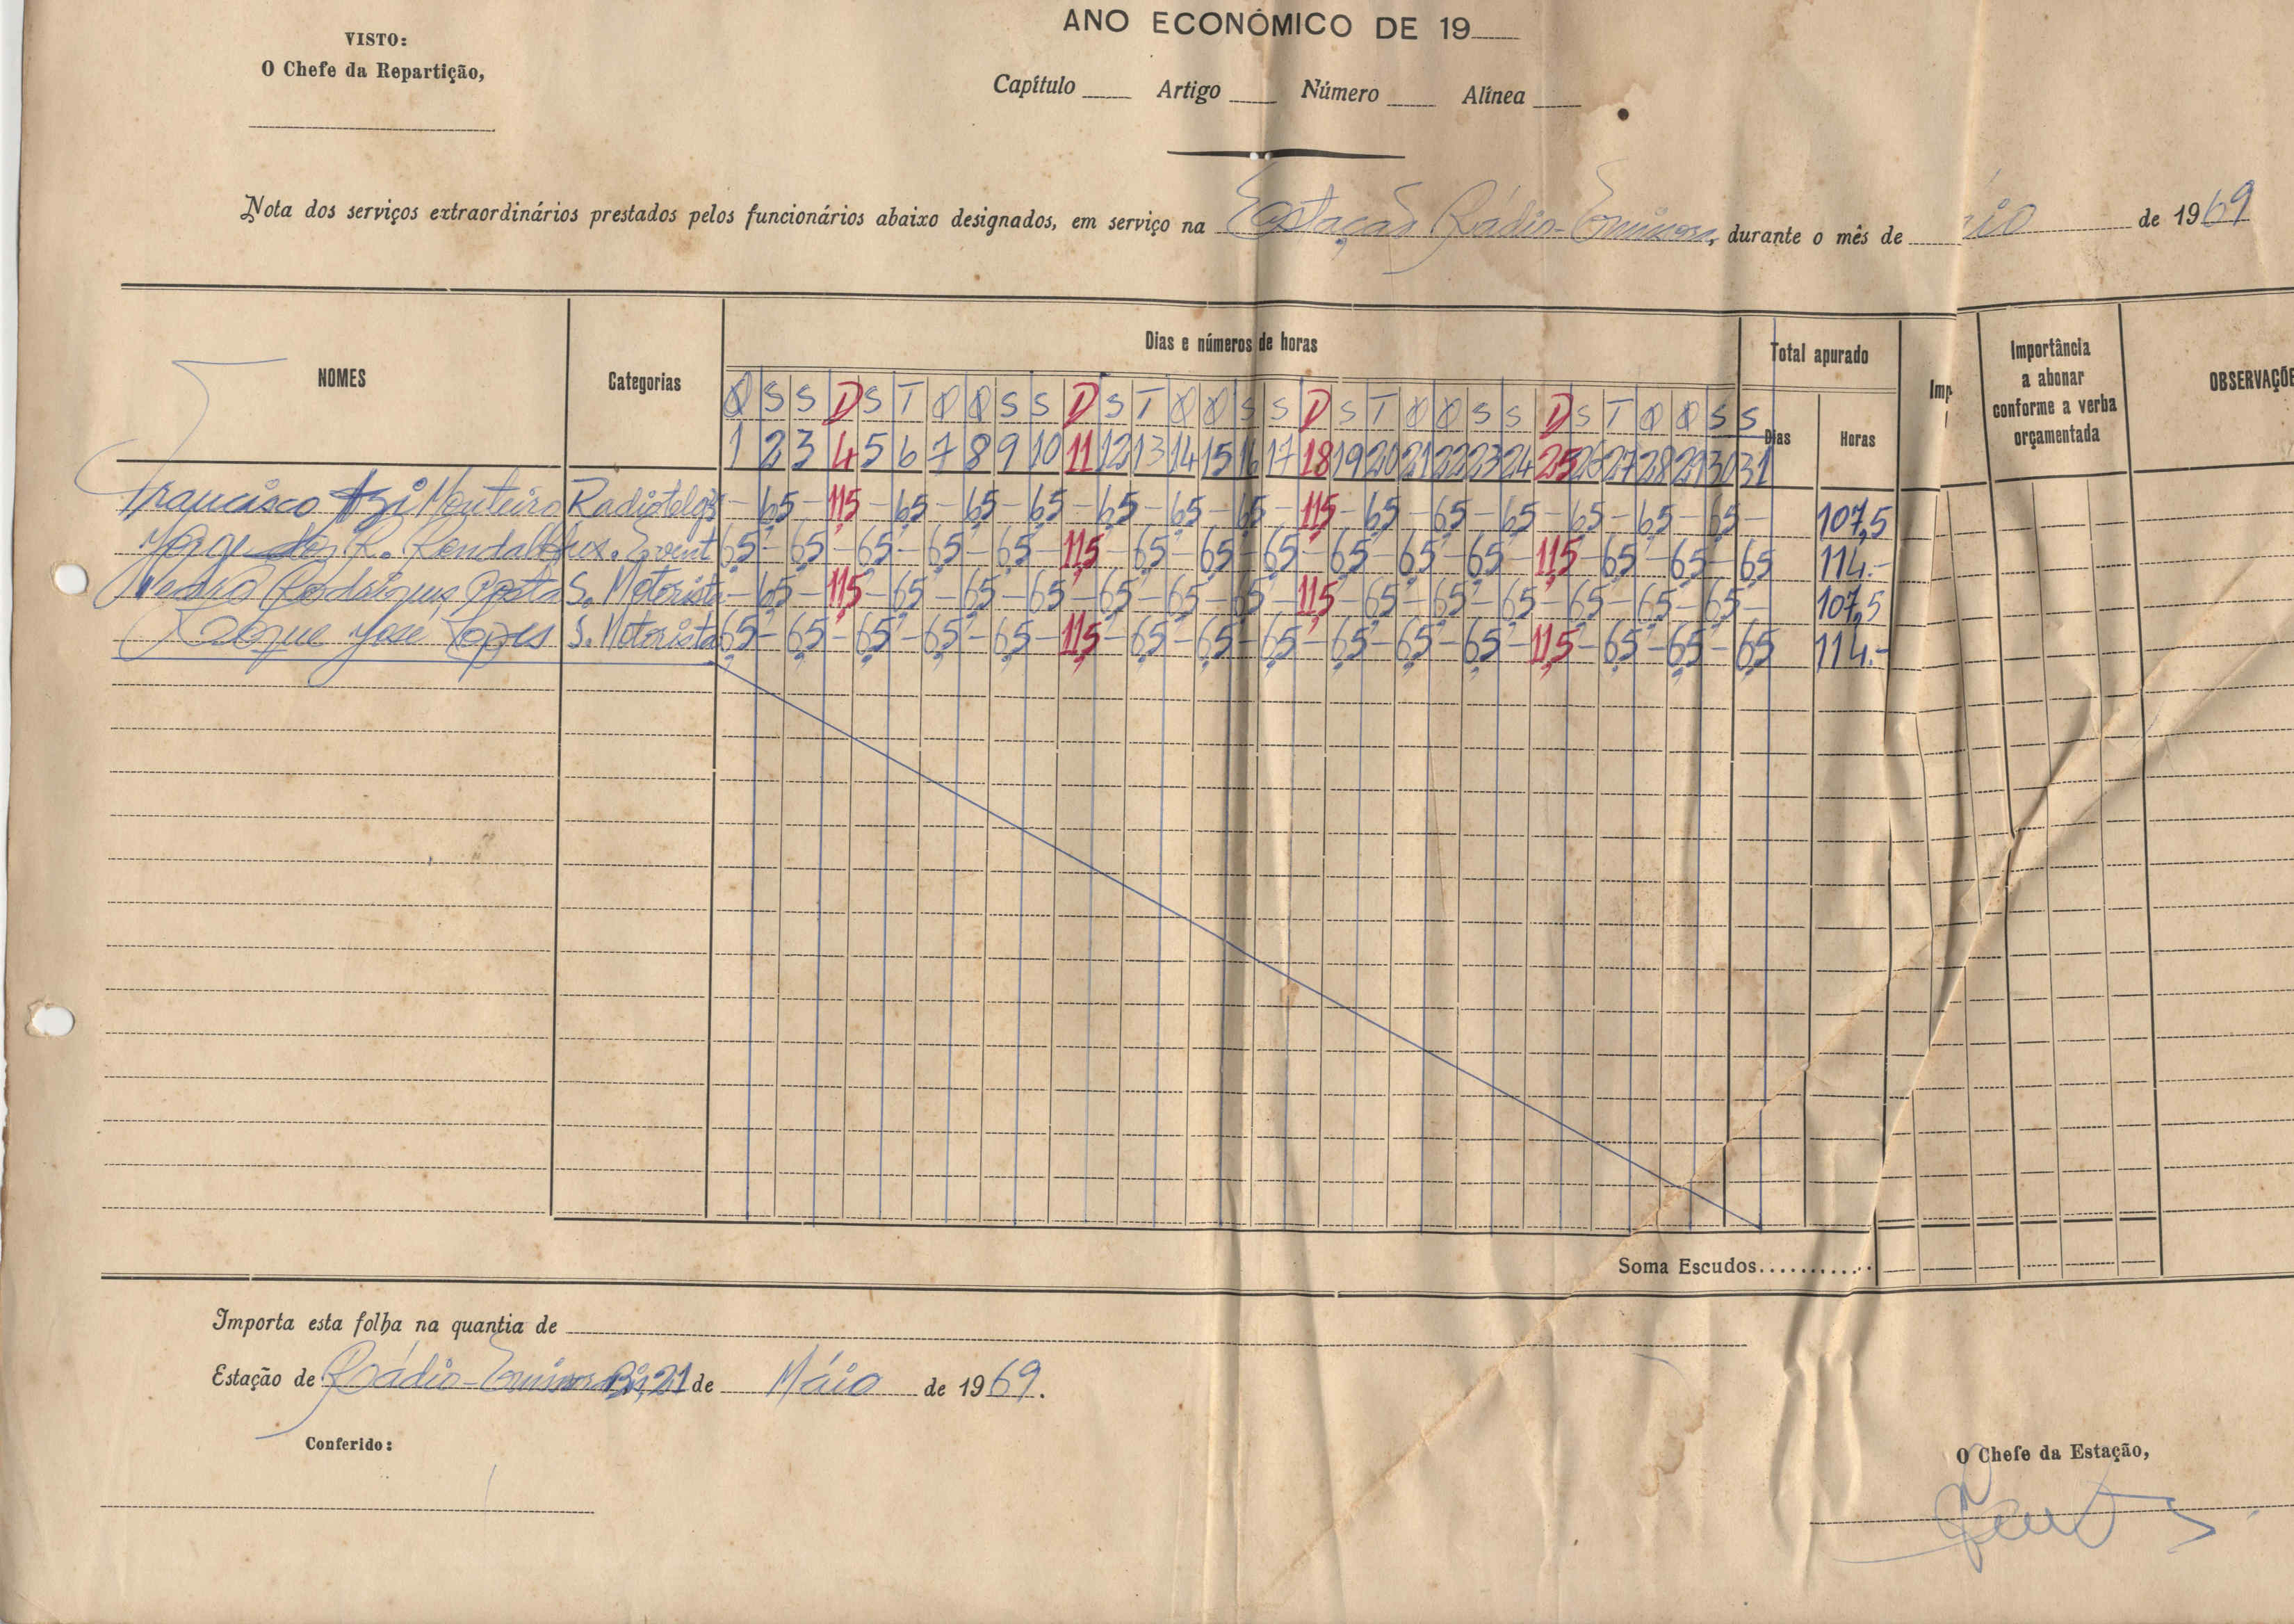 ANO ECONÓMICO DE 19
VISTO:
O Chefe da Repartição,
Capítulo Artigo Número Alínea
Nota dos serviços extraordinários prestados pelos funcionários abaixo designados, em serviço na Estação Rádio-Emissora, durante o mês de io de 1969
NOMES Categorias Dias e números de horas Total apurado Imp Importância a abonar conforme a verba orçamentada OBSERVAÇÕE
Q S S D S T Q Q S S D S T Q Q S S D S T Q Q S S D S T Q Q S S
1 2 3 4 5 6 7 8 9 10 11 12 13 14 15 16 17 18 19 20 21 22 23 24 25 26 27 28 29 30 31 Dias Horas
Francisco Monteiro - 6,5 - 11,5 - 6,5 - 6,5 - 6,5 - 6,5 - 6,5 - 6,5 - 11,5 - 6,5 - 6,5 - 6,5 - 6,5 - 6,5 - 6,5 - 107,5
Jorge R. 6,5 - 6,5 - 6,5 - 6,5 - 6,5 - 11,5 - 6,5 - 6,5 - 6,5 - 6,5 - 6,5 - 6,5 - 11,5 - 6,5 - 6,5 - 6,5 114.-
Pedro Rodrigues S. Motorista - 6,5 - 11,5 - 6,5 - 6,5 - 6,5 - 6,5 - 6,5 - 6,5 - 11,5 - 6,5 - 6,5 - 6,5 - 6,5 - 6,5 - 6,5 - 107,5
Roque José Lopes S. Motorista 6,5 - 6,5 - 6,5 - 6,5 - 6,5 - 11,5 - 6,5 - 6,5 - 6,5 - 6,5 - 6,5 - 6,5 - 11,5 - 6,5 - 6,5 - 6,5 114.-
Soma Escudos...........
Importa esta folha na quantia de
Estação de Rádio-Emissora 21 de Máio de 1969.
Conferido:
O Chefe da Estação,